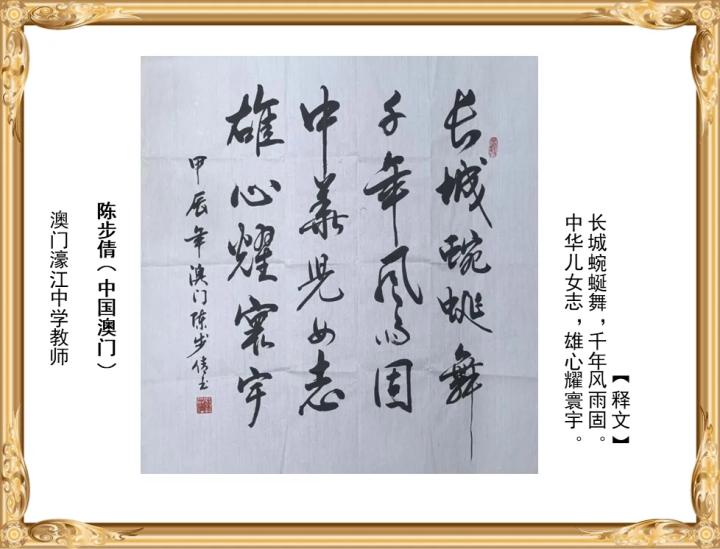 【释文】
长城蜿蜒舞，千年风雨固。
中华儿女志，雄心耀寰宇。
长城蜿蜒舞
千年风雨固
中華児女志
雄心耀寰宇
甲辰年澳门陈步倩书
陈步倩（中国澳门）
澳门濠江中学教师